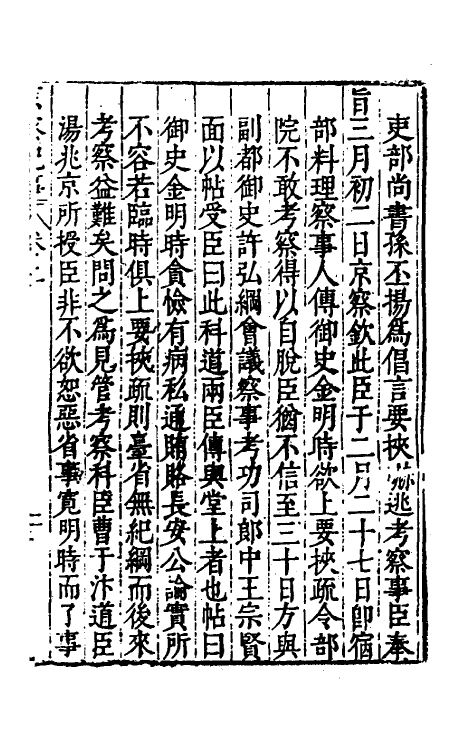 吏部尚書孫丕揚為倡言要挾逃考察事臣奉
旨三月初二日京察欽此臣于二月二十七日卽宿
部料理察事人傳御史金明時欲上要挾疏令部
院不敢考察得以自脫臣猶不信至三十日方與
副都御史許弘綱會議察事考功司郎中王宗賢
面以帖受臣曰此科道兩臣傳與堂上者也帖曰
御史金明時貪憸有病私通賄賂長安公論實所
不容若臨時俱上要挾疏則臺省無紀綱而後來
考察益難矣問之為見管考察科臣曹于汴道臣
湯兆京所授臣非不欲恕惡省事寬明時而了事